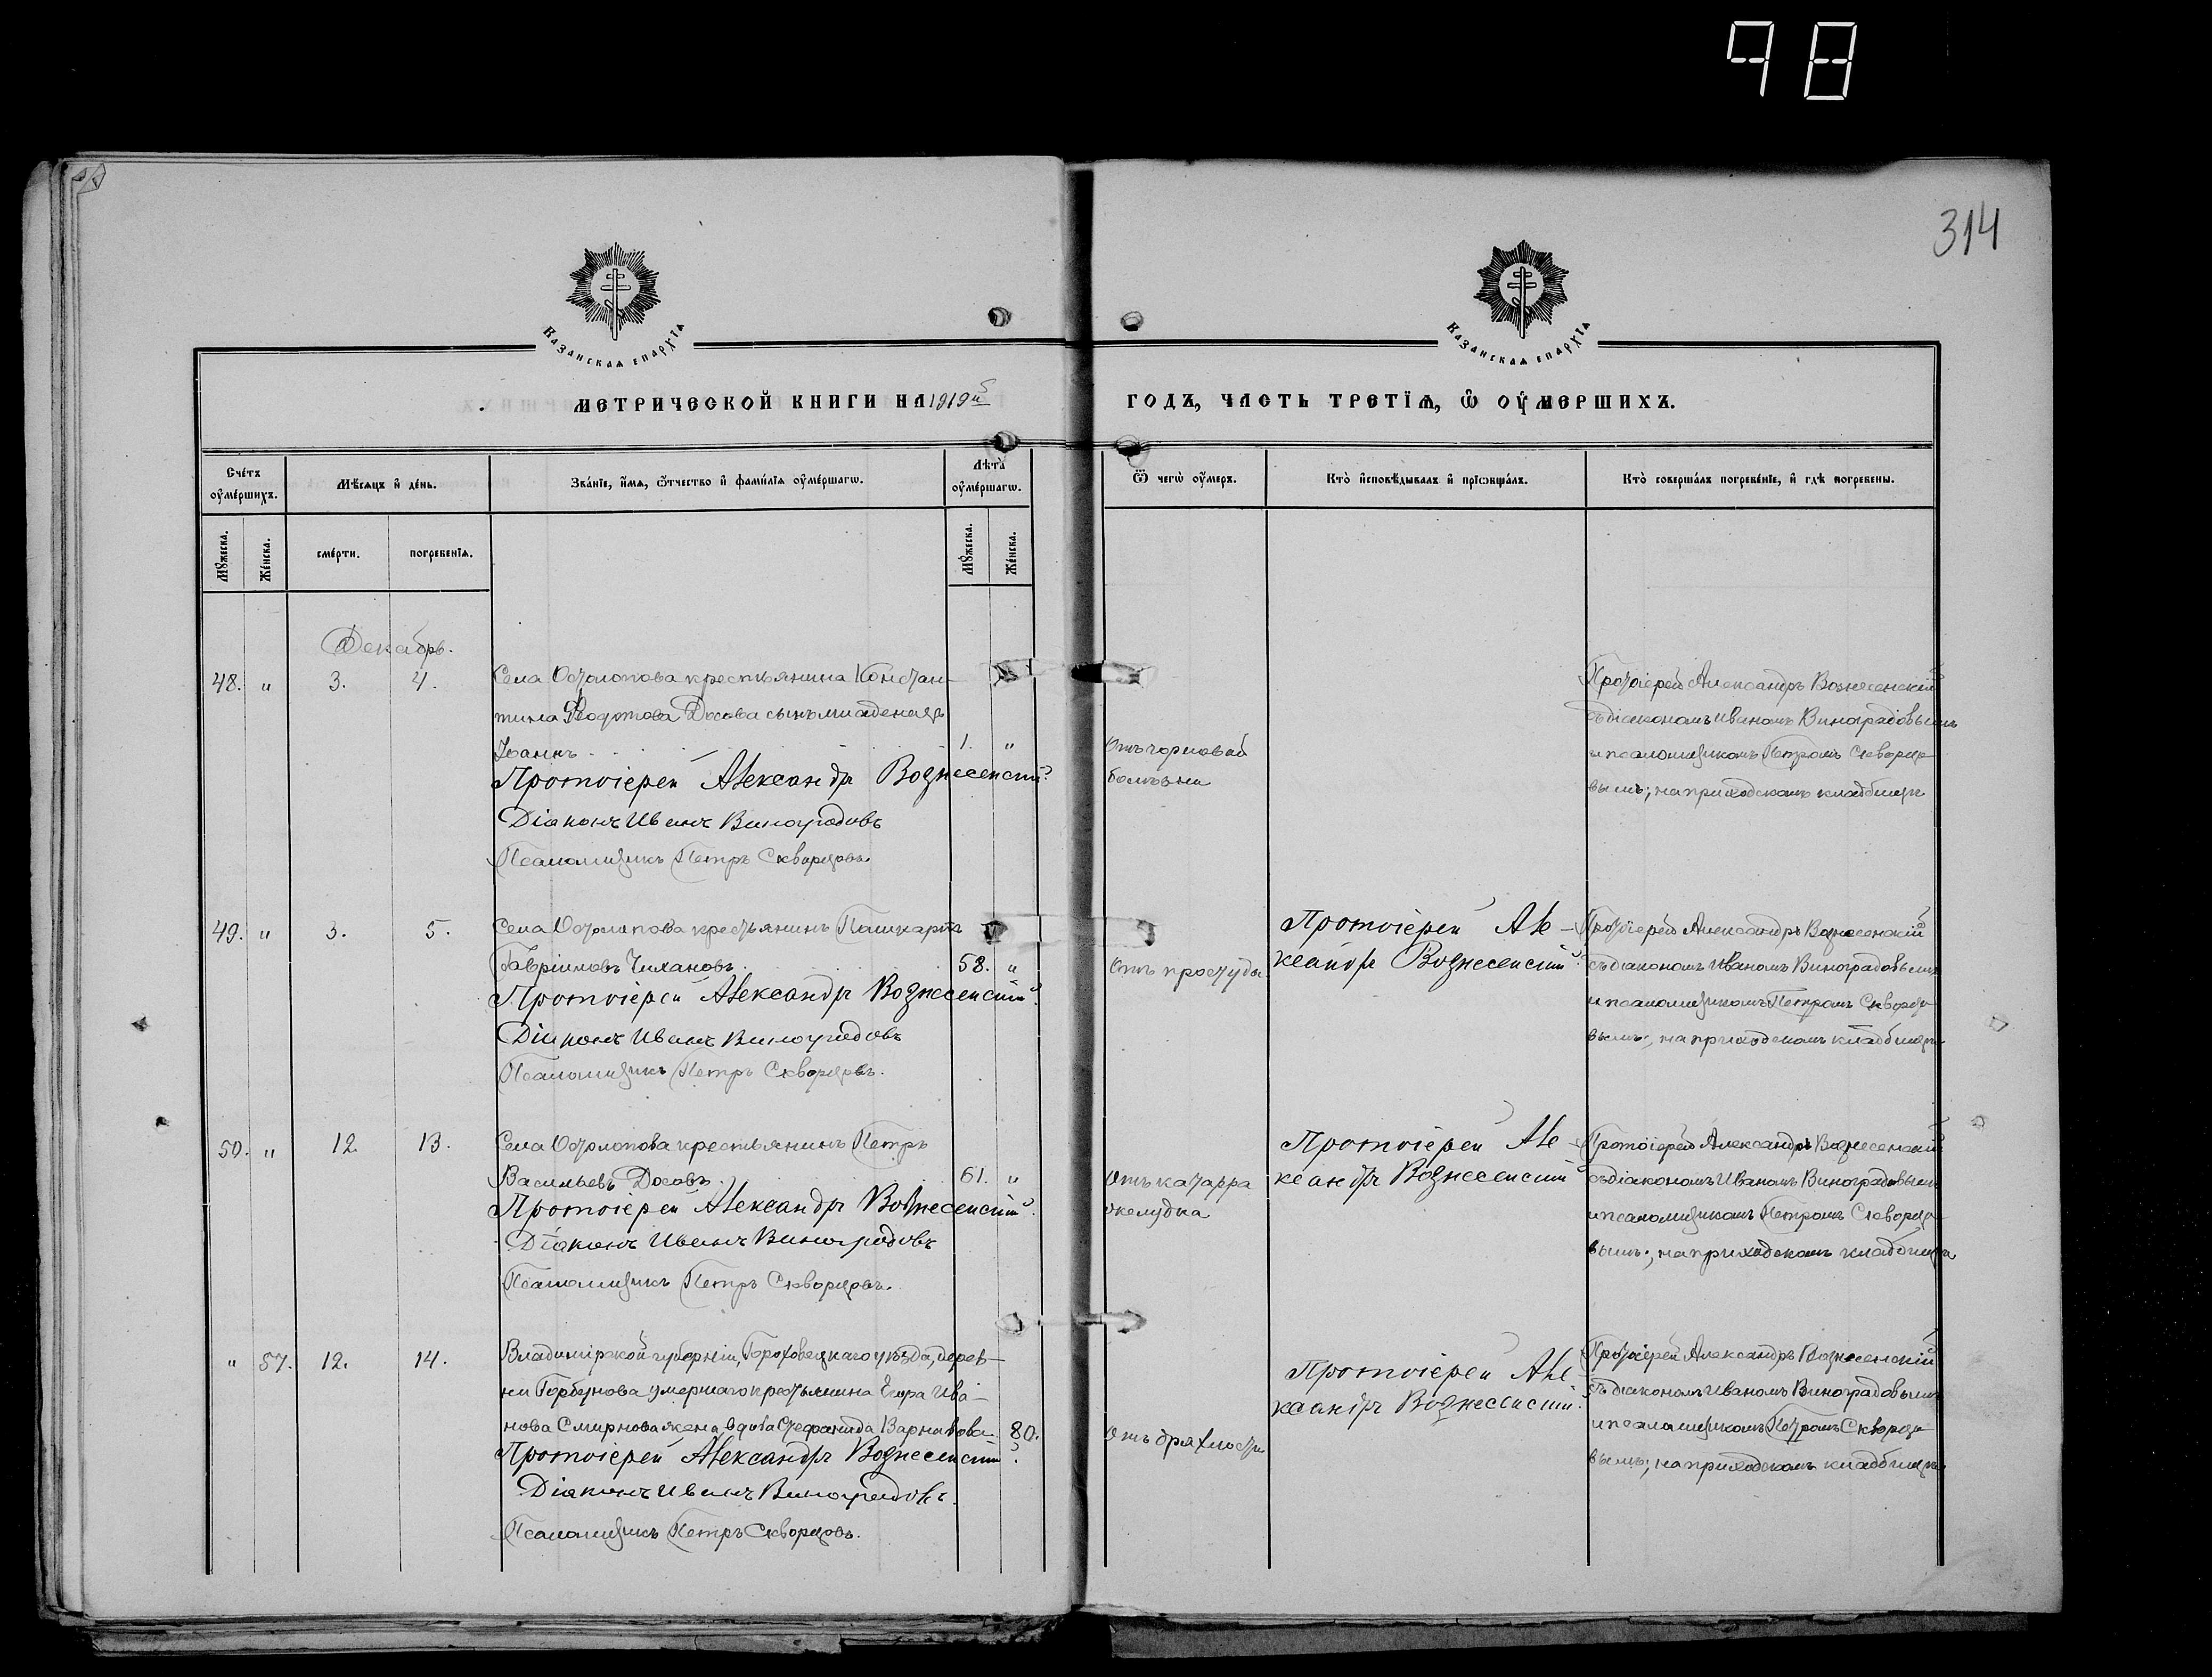 98
314
Казанская епархїя
Казанская епархїя
МЕТРИЧЕСКОЙ КНИГИ НА 1919й
ГОДЪ, ЧАСТЬ ТРЕТЇЯ, Ѿ ОУМЕРШИХЪ.
Счетъ оумершихъ.
Мѣсяцъ и день.
Званїе, имя, ѿчество и фамилїя оумершагѡ.
Лѣта оумершагѡ.
Ѿ чегѡ оумеръ.
Кто исповѣдывалъ и прїѡбщалъ.
Кто совершалъ погребенїе, и гдѣ погребены.
Мꙋжеска.
Женска.
смерти.
погребенїя.
Мꙋжеска.
Женска.
Декабрь.
48. " 3. 4.
Села Остолопова крестьянина Констан-
тина Ѳедотова Досова сынъ младенецъ
Іоаннъ 1. "
Протоіерей Александръ Вознесенскій
Діаконъ Иванъ Виноградовъ
Псаломщикъ Петръ Скворцовъ.
болѣзни
Протоіерей Александръ Вознесенскій
съ діакономъ Иваномъ Виноградовымъ
и псаломщикомъ Петромъ Скворцо-
вымъ; на приходскомъ кладбищѣ
49. " 3. 5.
Села Остолопова крестьянинъ
Гавріиловъ Чихановъ. 58. "
Протоіерей Александръ Вознесенскій.
Діаконъ Иванъ Виноградовъ
Псаломщикъ Петръ Скворцовъ.
Отъ простуды
Протоіерей Але-
ксандръ Вознесенскій.
Протоіерей Александръ Вознесенскій
съ діакономъ Иваномъ Виноградовымъ
и псаломщикомъ Петромъ Скворцо-
вымъ; на приходскомъ кладбищѣ
50. " 12. 13.
Села Остолопова крестьянинъ Петръ
Васильевъ Досовъ. 61. "
Протоіерей Александръ Вознесенскій.
Діаконъ Иванъ Виноградовъ
Псаломщикъ Петръ Скворцовъ.
Отъ катарра
желудка
Протоіерей Але-
ксандръ Вознесенскій
Протоіерей Александръ Вознесенскій
съ діакономъ Иваномъ Виноградовымъ
и псаломщикомъ Петромъ Скворцо-
вымъ; на приходскомъ кладбищѣ
" 57. 12. 14.
Владимірской губерніи, Гороховецкаго уѣзда, дерев-
ни Горбунова умершаго крестьянина Егора Ива-
нова Смирнова жена, вдова Стефанида Варнавова. 80.
Протоіерей Александръ Вознесенскій.
Діаконъ Иванъ Виноградовъ.
Псаломщикъ Петръ Скворцовъ.
Отъ дряхлости
Протоіерей Але-
ксандръ Вознесенскій.
Протоіерей Александръ Вознесенскій
съ діакономъ Иваномъ Виноградовымъ
и псаломщикомъ Петромъ Скворцо-
вымъ; на приходскомъ кладбищѣ